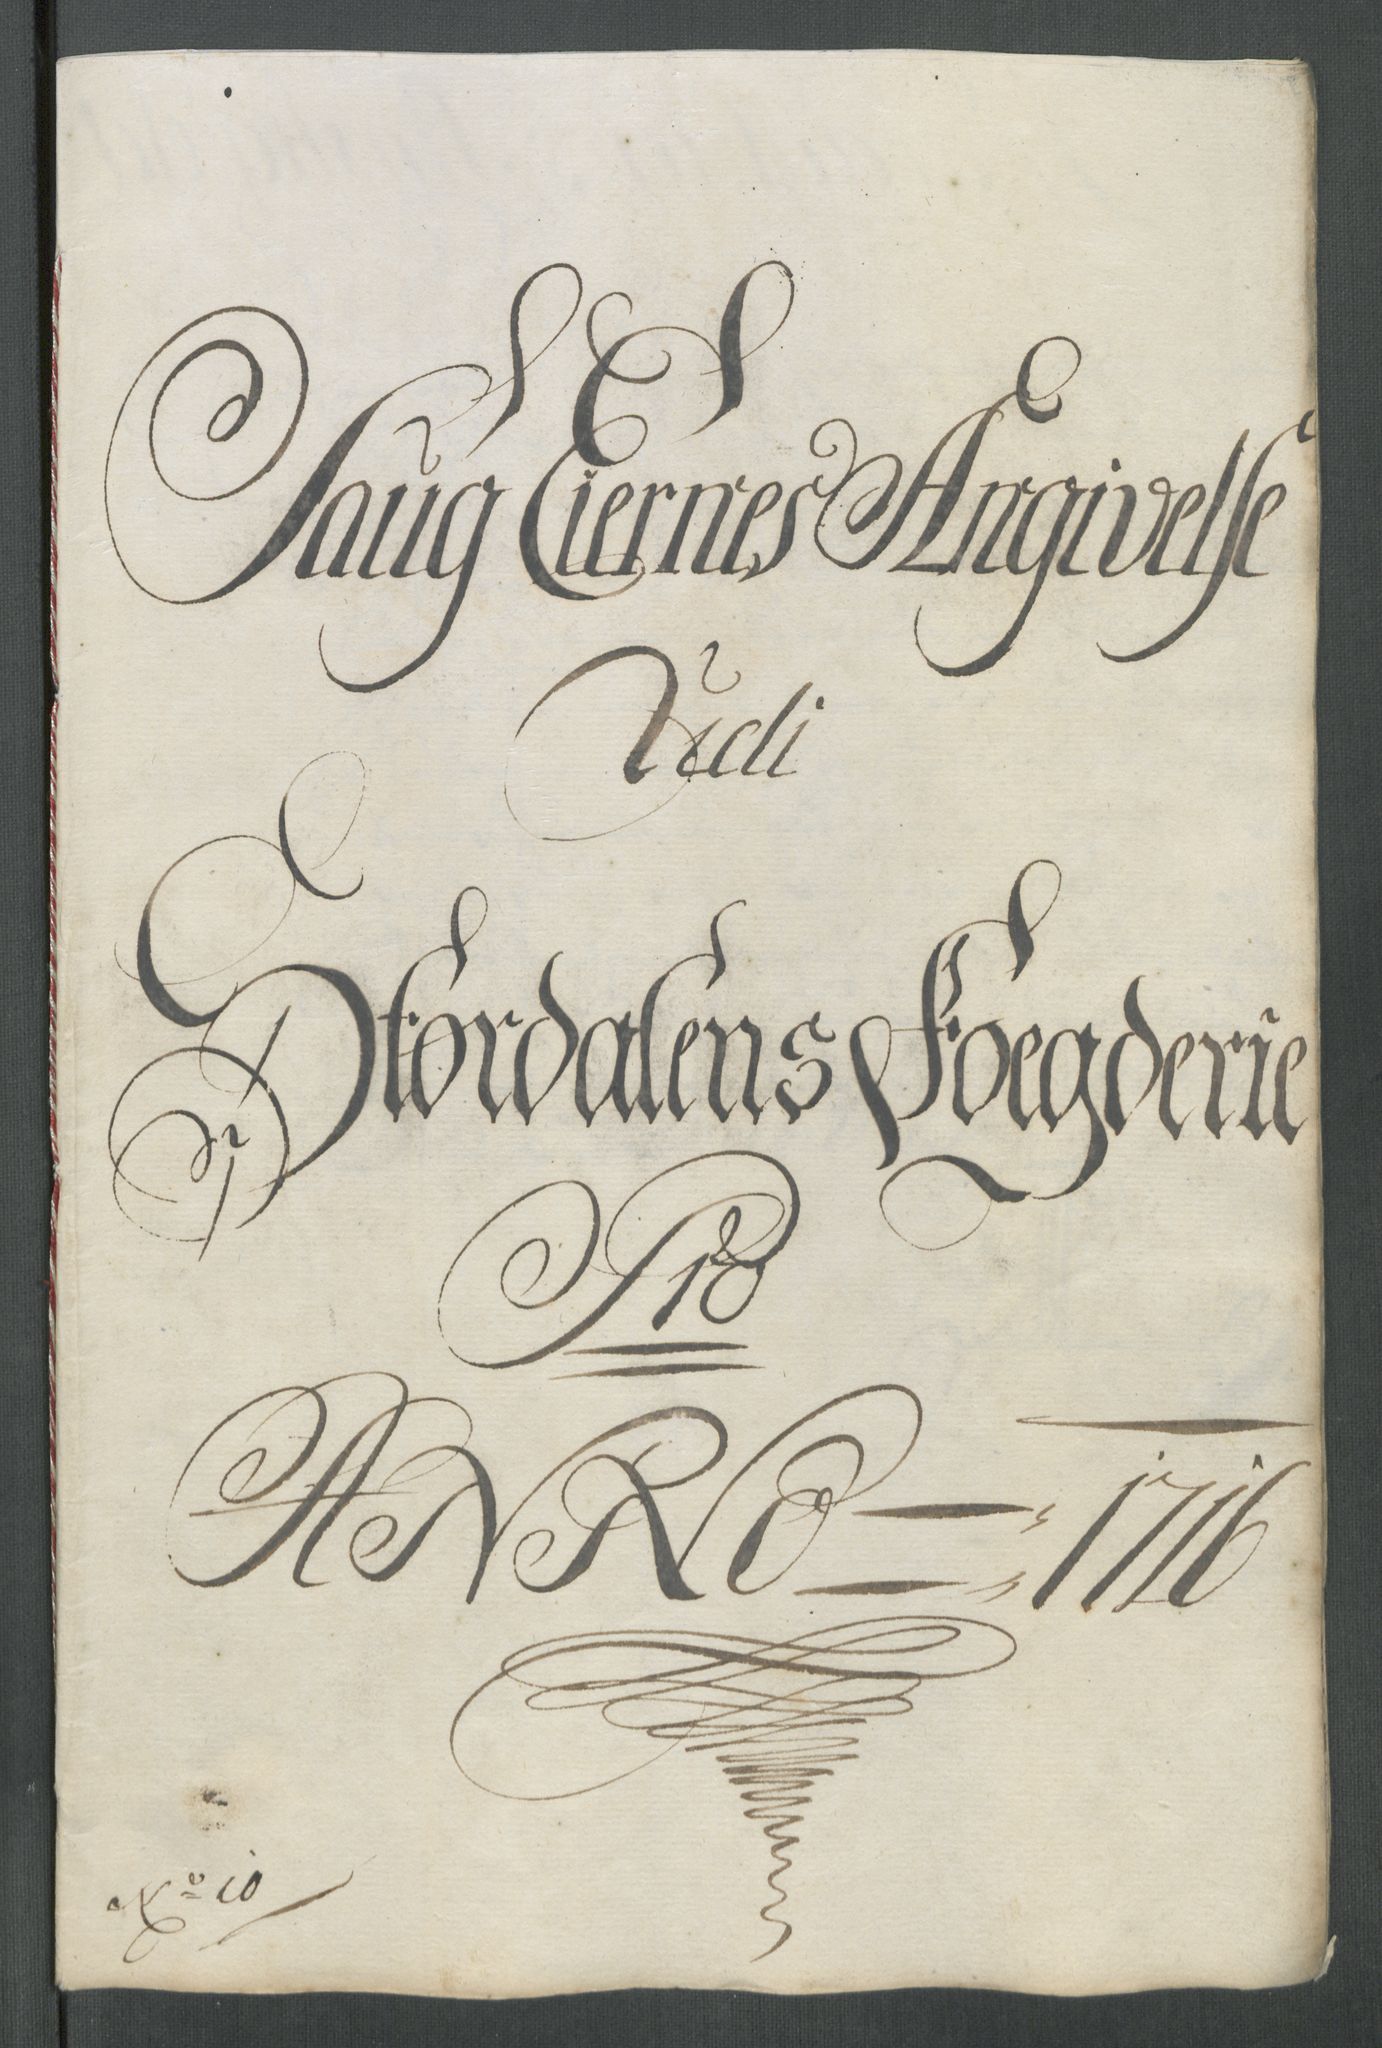 Saug Eiernes Angivelse
Udi
Stördalens Foegderie
Pro
ANNO 1716
No 10